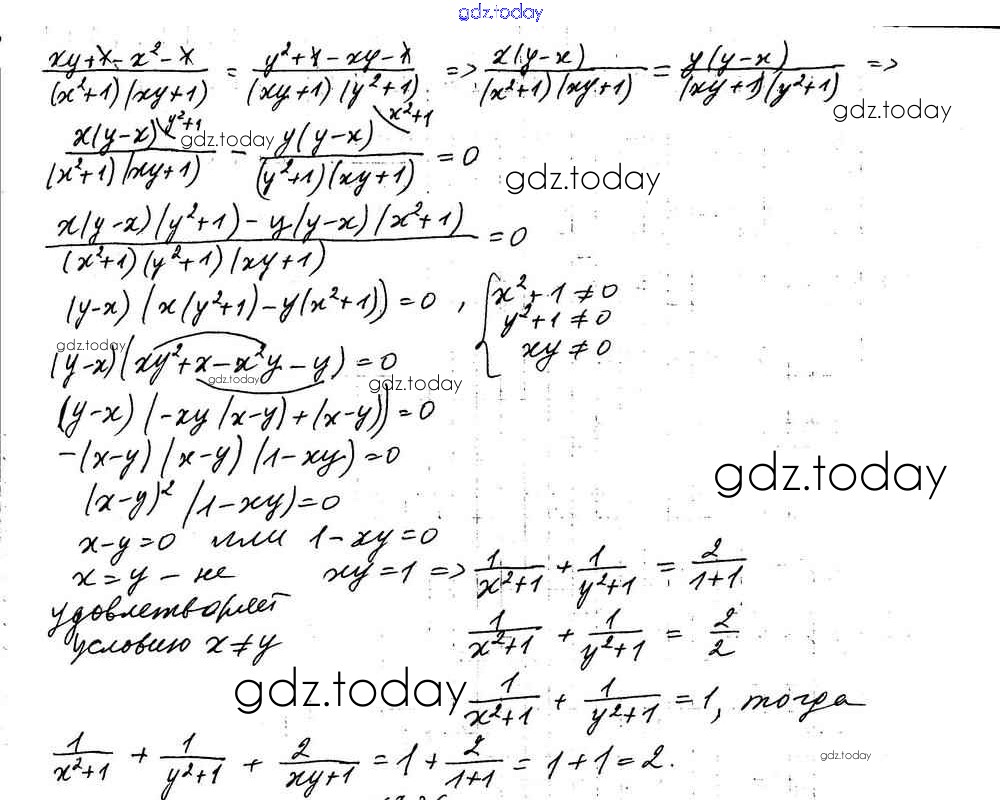 gdz.today
(xy+x-x²-x)/((x²+1)(xy+1)) = (y²+x-xy-x)/((xy+1)(y²+1)) => x(y-x)/((x²+1)(xy+1)) = y(y-x)/((xy+1)(y²+1)) =>
gdz.today
x(y-x)\y²+1/((x²+1)(xy+1)) - y(y-x)\x²+1/((y²+1)(xy+1)) = 0
gdz.today
gdz.today
(x(y-x)(y²+1)-y(y-x)(x²+1))/((x²+1)(y²+1)(xy+1)) = 0
(y-x)(x(y²+1)-y(x²+1))=0, { x²+1≠0
y²+1≠0
xy≠0
gdz.today
(y-x)(xy²+x-x²y-y)=0
gdz.today
gdz.today
(y-x)(-xy(x-y)+(x-y))=0
-(x-y)(x-y)(1-xy)=0
gdz.today
(x-y)²(1-xy)=0
x-y=0 или 1-xy=0
x=y - не xy=1 => 1/(x²+1) + 1/(y²+1) = 2/(1+1)
удовлетворяет
1/(x²+1) + 1/(y²+1) = 2/2
условию x≠y
gdz.today
1/(x²+1) + 1/(y²+1) = 1, тогда
1/(x²+1) + 1/(y²+1) + 2/(xy+1) = 1 + 2/(1+1) = 1+1=2.
gdz.today